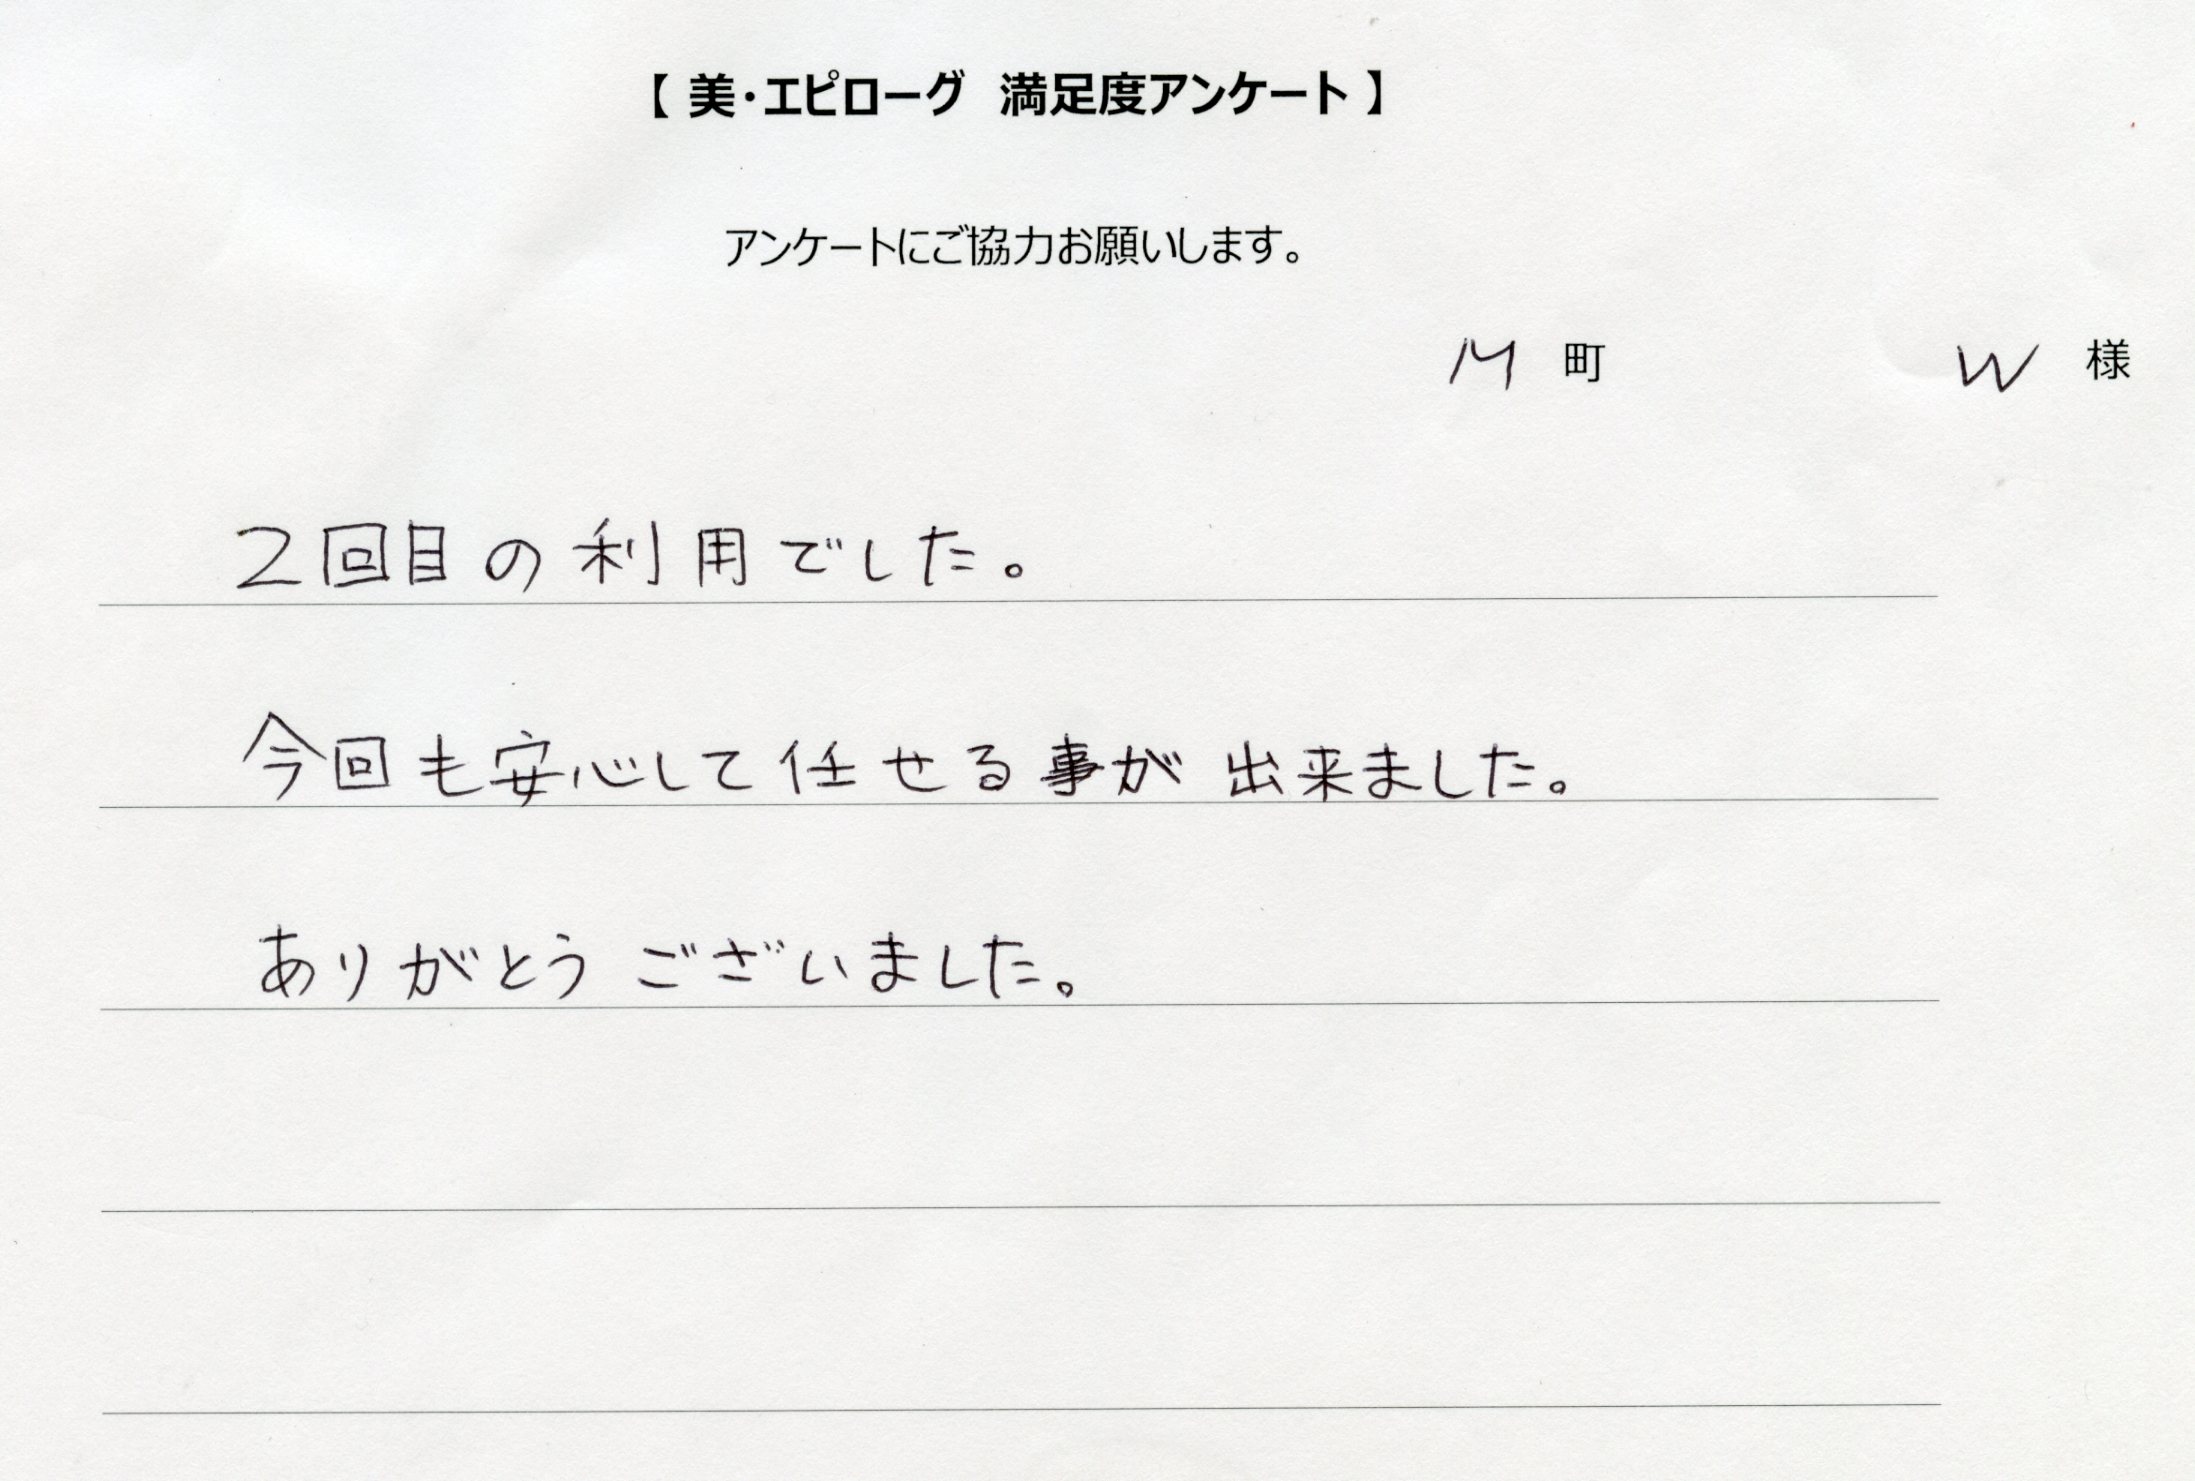 【 美・エピローグ 満足度アンケート 】
アンケートにご協力お願いします。
M 町 W 様
2回目の利用でした。
今回も安心して任せる事が出来ました。
ありがとうございました。